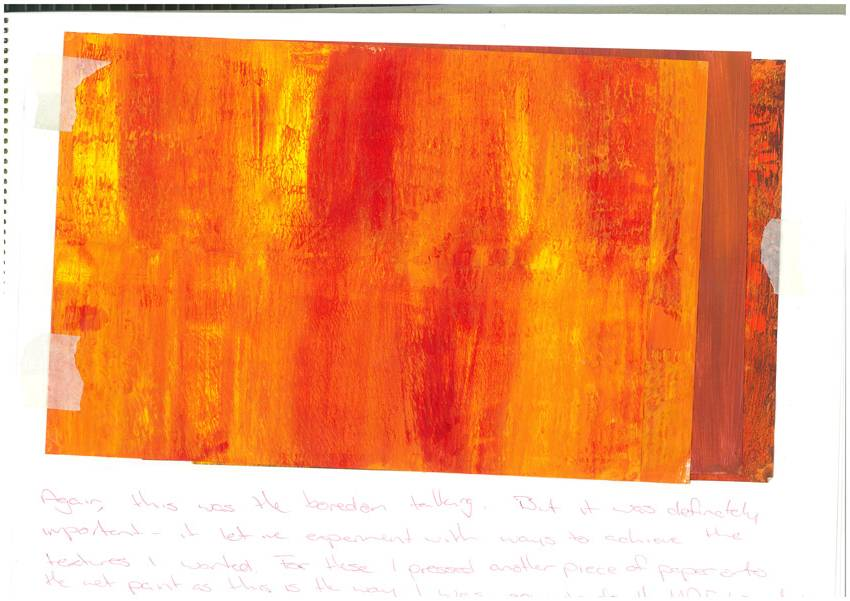 Again, this was the boredom talking. But it was definately
important - it let me experiment with ways to achieve the
textures I wanted. For these I pressed another piece of paper onto
the wet paint as this is the way I was